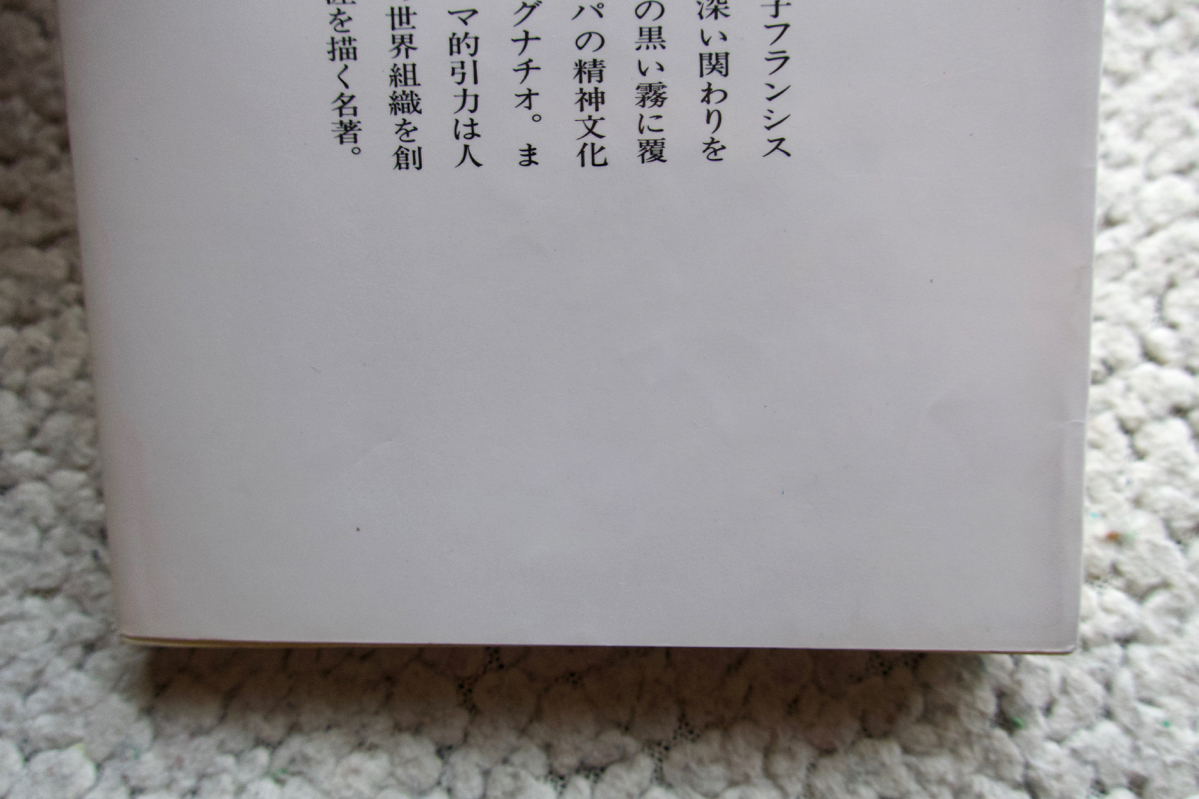 子フランシス
深い関わりを
の黒い霧に覆
パの精神文化
グナチオ。ま
マ的引力は人
世界組織を創
を描く名著。